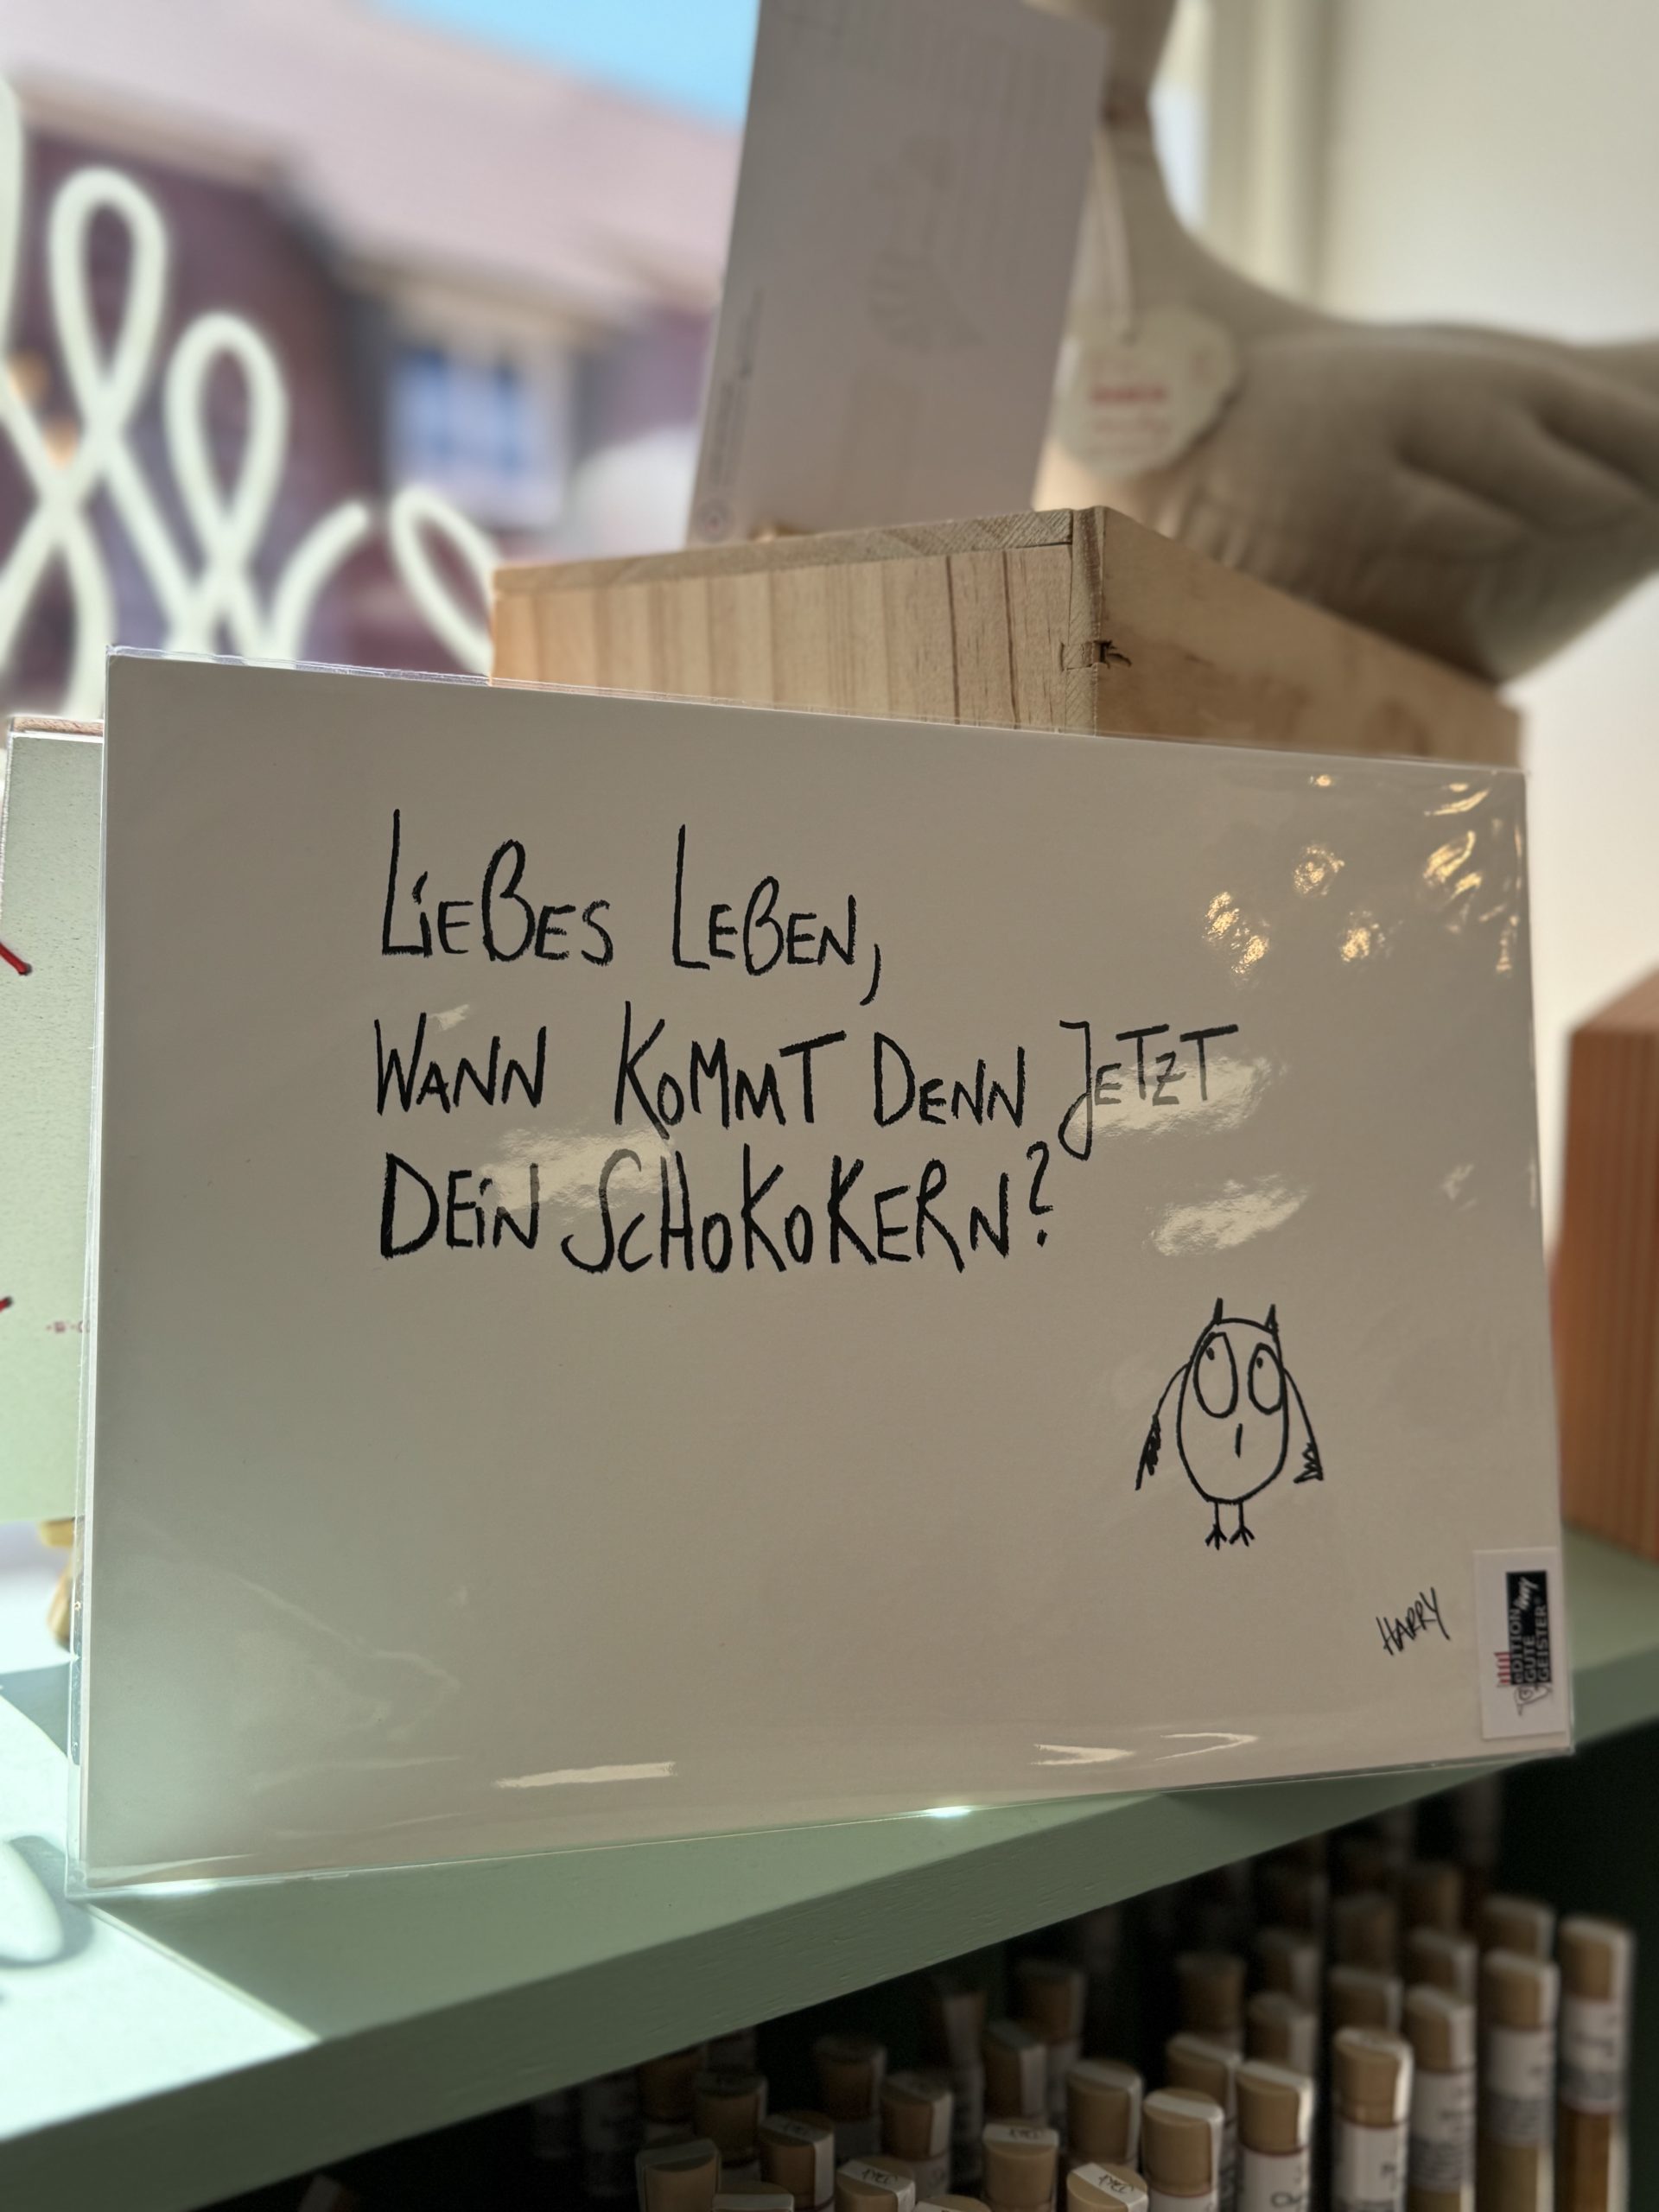 LIEBES LEBEN,
WANN KOMMT DENN JETZT
DEIN SCHOKOKERN?
HARRY
EDITION
GUTE
GEISTER